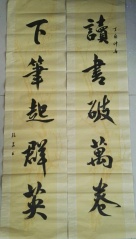 讀書破萬卷
下筆起群英